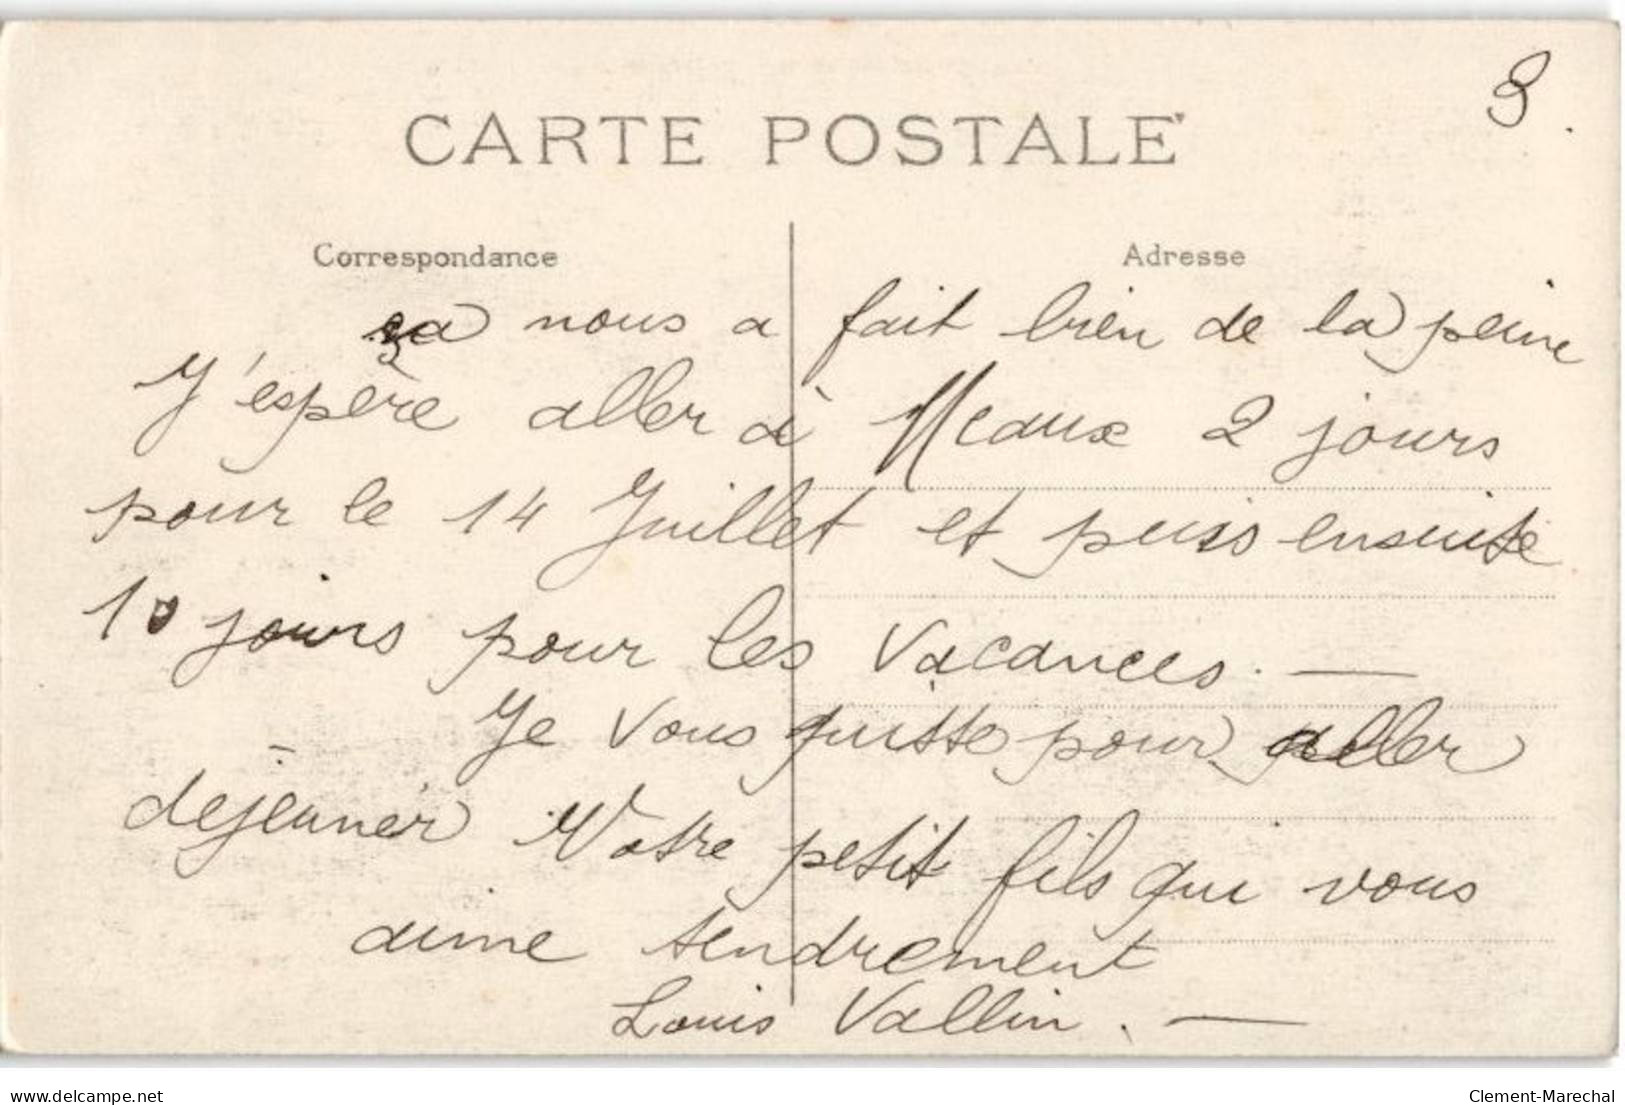 3.
CARTE POSTALE
Correspondance
Adresse
ça nous a fait bien de la peine
J'espère aller à Meaux 2 jours
pour le 14 Juillet et puis ensuite
10 jours pour les vacances. —
Je vous quitte pour aller
dejeuner Votre petit fils qui vous
aime tendrement
Louis Vallin. —
delcampe.net
Clement-Marechal